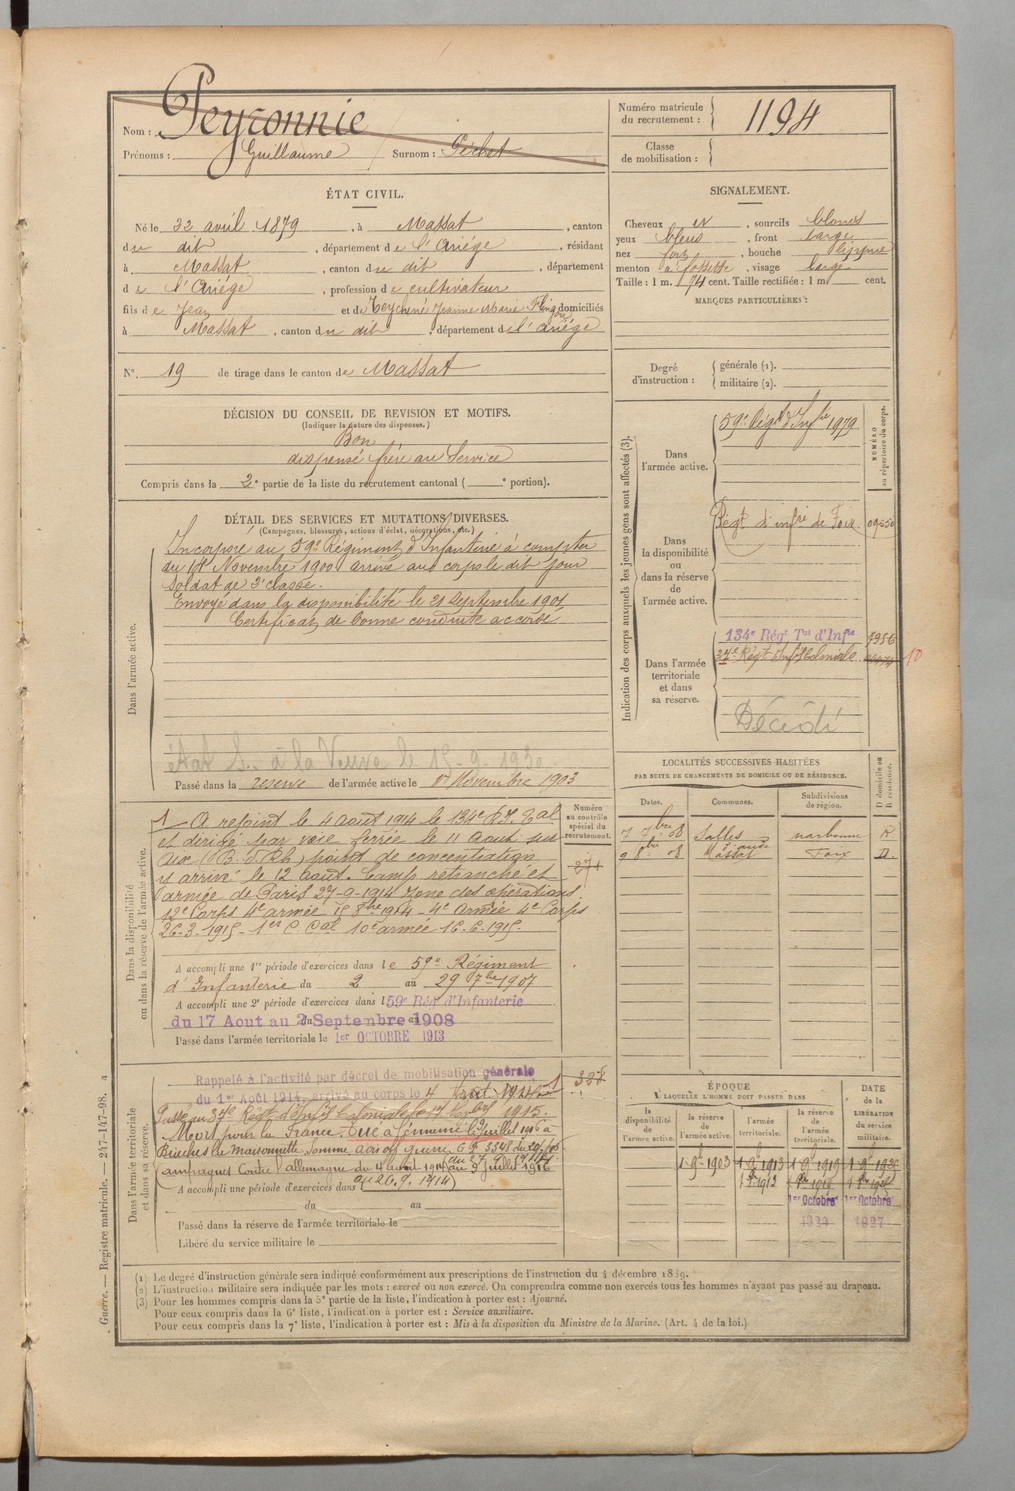 Nom : Peyronnie
Prénoms : Guillaume Surnom : Pichet
Numéro matricule du recrutement : 1194
Classe de mobilisation :
ÉTAT CIVIL.
Né le 22 avril 1879, à Massat, canton
du dit, département de l'Ariége, résidant
à Massat, canton du dit, département
de l'Ariége, profession de cultivateur
fils de Jean et de Teychené Jeanne Marie domiciliés
à Massat, canton du dit, département de l'Ariége
N° 19 de tirage dans le canton de Massat
SIGNALEMENT.
Cheveux et, sourcils blonds
yeux bleus, front large
nez fort, bouche lippue
menton à fossette, visage large
Taille : 1 m. 74 cent. Taille rectifiée : 1 m cent.
MARQUES PARTICULIÈRES :
Degré d'instruction : générale (1).
militaire (2).
DÉCISION DU CONSEIL DE REVISION ET MOTIFS.
(Indiquer la nature des dispenses.)
Bon
dispensé frère au Service
Compris dans la 2e partie de la liste du recrutement cantonal ( e portion).
DÉTAIL DES SERVICES ET MUTATIONS DIVERSES.
(Campagnes, blessures, actions d'éclat, décorations, etc.)
Dans l'armée active.
Incorporé au 59e Régiment d'Infanterie à compter
du Novembre 1900 arrivé au corps le dit jour
Soldat de 2e classe.
Envoyé dans la disponibilité le 21 Septembre 1901
Certificat de bonne conduite accordé
à la Veuve le 15-9-1930
Passé dans la réserve de l'armée active le 1er Novembre 1903
Indication des corps auxquels les jeunes gens sont affectés (3).
NUMÉRO au répertoire du corps.
Dans l'armée active.
59e Régt d'Infrie 1979
Dans la disponibilité ou dans la réserve de l'armée active.
Régt d'infie de Foix
Dans l'armée territoriale et dans sa réserve.
134e Régt Tal d'Infie
37e Régt d'Inf Coloniale 10
Décédé
LOCALITÉS SUCCESSIVES HABITÉES
PAR SUITE DE CHANGEMENTS DE DOMICILE OU DE RÉSIDENCE.
Dates. Communes. Subdivisions de région. D domicile ou R résidence.
7 7bre 08 Salles d'aude narbonne R
9 8bre 08 Massat Foix D.
Dans la disponibilité ou dans la réserve de l'armée active.
Numéro au contrôle spécial du recrutement.
A rejoint le 4 août 1914 le 134e R.I. Tal
et dirigé par voie ferrée le 11 Août sur
Aix (B. d. Rh) point de concentration
y arrivé le 12 août. Camp retranché et
armée de Paris 27-9-1914 Zone des opérations
12e Corps 4e armée 15 8bre 1914 - 4e Armée 4e Corps
26-3-1915 - 1er C. Cal 10e armée 16-6-1915-
A accompli une 1re période d'exercices dans le 59e Régiment
d'Infanterie du 2 au 29 7bre 1907
A accompli une 2e période d'exercices dans l 59e Rég d'Infanterie
du 17 Aout au 2 Septembre 1908
Passé dans l'armée territoriale le 1er OCTOBRE 1913
Dans l'armée territoriale et dans sa réserve.
Rappelé à l'activité par décret de mobilisation générale
du 1er Août 1914, arrivé au corps le 4 Août 1914
Passé au 37e Régt d'Inf Coloniale 1915.
Mort pour la France. Tué à l'ennemi le 9 Juillet 1916 à
Biaches la Maisonnette Somme
Campagnes Contre l'Allemagne du 4 août 1914 au 9 Juillet 1916
au 26.9.1914)
A accompli une période d'exercices dans
du au
Passé dans la réserve de l'armée territoriale le
Libéré du service militaire le
ÉPOQUE
À LAQUELLE L'HOMME DOIT PASSER DANS
DATE de la LIBÉRATION du service militaire.
la disponibilité de l'armée active. la réserve de l'armée active. l'armée territoriale. la réserve de l'armée territoriale.
1 9bre 1903 1 9bre 1913 1 9bre 1919
1er Octobre 1er Octobre
1927
(1) Le degré d'instruction générale sera indiqué conformément aux prescriptions de l'instruction du 4 décembre 1889.
(2) L'instruction militaire sera indiquée par les mots : exercé ou non exercé. On comprendra comme non exercés tous les hommes n'ayant pas passé au drapeau.
(3) Pour les hommes compris dans la 5e partie de la liste, l'indication à porter est : Ajourné.
Pour ceux compris dans la 6e liste, l'indication à porter est : Service auxiliaire.
Pour ceux compris dans la 7e liste, l'indication à porter est : Mis à la disposition du Ministre de la Marine. (Art. 4 de la loi.)
Guerre. — Registre matricule. — 247-147-98.